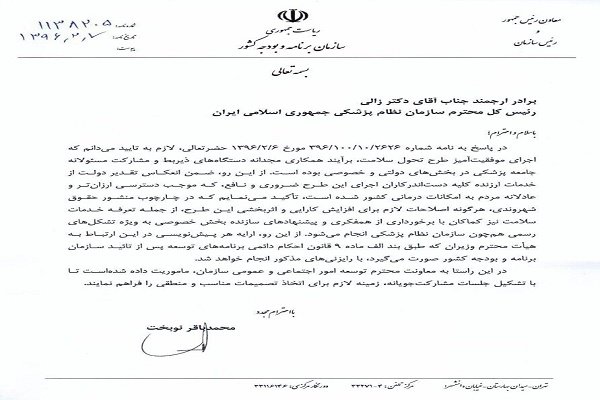 معاون رئیس جمهور
و
رئیس سازمان
ریاست جمهوری
سازمان برنامه و بودجه کشور
۱۱۳۸۲۰۵
۱۳۹۶,۲,۷
بسمه تعالی
برادر ارجمند جناب آقای دکتر زالی
رئیس کل محترم سازمان نظام پزشکی جمهوری اسلامی ایران
باسلام و احترام؛
در پاسخ به نامه شماره ۳۹۶/۱۰۰/۱۰/۲۶۲۶ مورخ ۱۳۹۶/۲/۶ حضرتعالی، لازم به تایید می‌دانم که
اجرای موفقیت‌آمیز طرح تحول سلامت، برآیند همکاری مجدانه دستگاه‌های ذیربط و مشارکت مسئولانه
جامعه پزشکی در بخش‌های دولتی و خصوصی بوده است. از این رو، ضمن انعکاس تقدیر دولت از
خدمات ارزنده کلیه دست‌اندرکاران اجرای این طرح ضروری و نافع، که موجب دسترسی ارزان‌تر و
عادلانه مردم به امکانات درمانی کشور شده است، تأکید می‌نمایم که در چارچوب منشور حقوق
شهروندی، هرگونه اصلاحات لازم برای افزایش کارایی و اثربخشی این طرح، از جمله تعرفه خدمات
سلامت نیز کماکان با برخورداری از همفکری و پیشنهادهای سازنده بخش خصوصی به ویژه تشکل‌های
رسمی هم‌چون سازمان نظام پزشکی انجام می‌شود. از این رو، ارایه هر پیش‌نویسی در این ارتباط به
هیأت محترم وزیران که طبق بند الف ماده ۹ قانون احکام دائمی برنامه‌های توسعه پس از تائید سازمان
برنامه و بودجه کشور صورت می‌گیرد، با رایزنی‌های مذکور انجام خواهد شد.
در این راستا به معاونت محترم توسعه امور اجتماعی و عمومی سازمان، ماموریت داده شده‌است تا
با تشکیل جلسات مشارکت‌جویانه، زمینه لازم برای اتخاذ تصمیمات مناسب و منطقی را فراهم نمایند.
با احترام مجدد
محمدباقر نوبخت
تهران - میدان بهارستان - خیابان دانشسرا مرکز تلفن: ۴-۳۳۲۷۱ دورنگار مرکزی: ۳۳۱۱۶۱۴۶